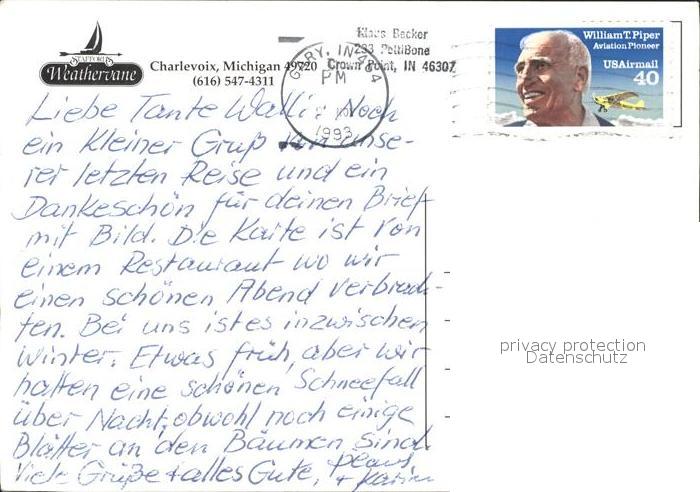 STAFFORD'S
Weathervane
Charlevoix, Michigan 49720
(616) 547-4311
Klaus Becker
233 PettiBone
Crown Point, IN 46307
GARY, IN 464
PM
1993
William T. Piper
Aviation Pioneer
USAirmail
40
Liebe Tante Walli: Noch
ein kleiner Gruß von unse-
rer letzten Reise und ein
Dankeschön für deinen Brief
mit Bild. Die Karte ist von
einem Restaurant wo wir
einen schönen Abend verbrach-
ten. Bei uns ist es inzwischen
Winter. Etwas früh, aber wir
hatten eine schönen Schneefall
über Nacht, obwohl noch einige
Blätter an den Bäumen sind.
Viele Grüße + alles Gute, Klaus
+ Karin
privacy protection
Datenschutz